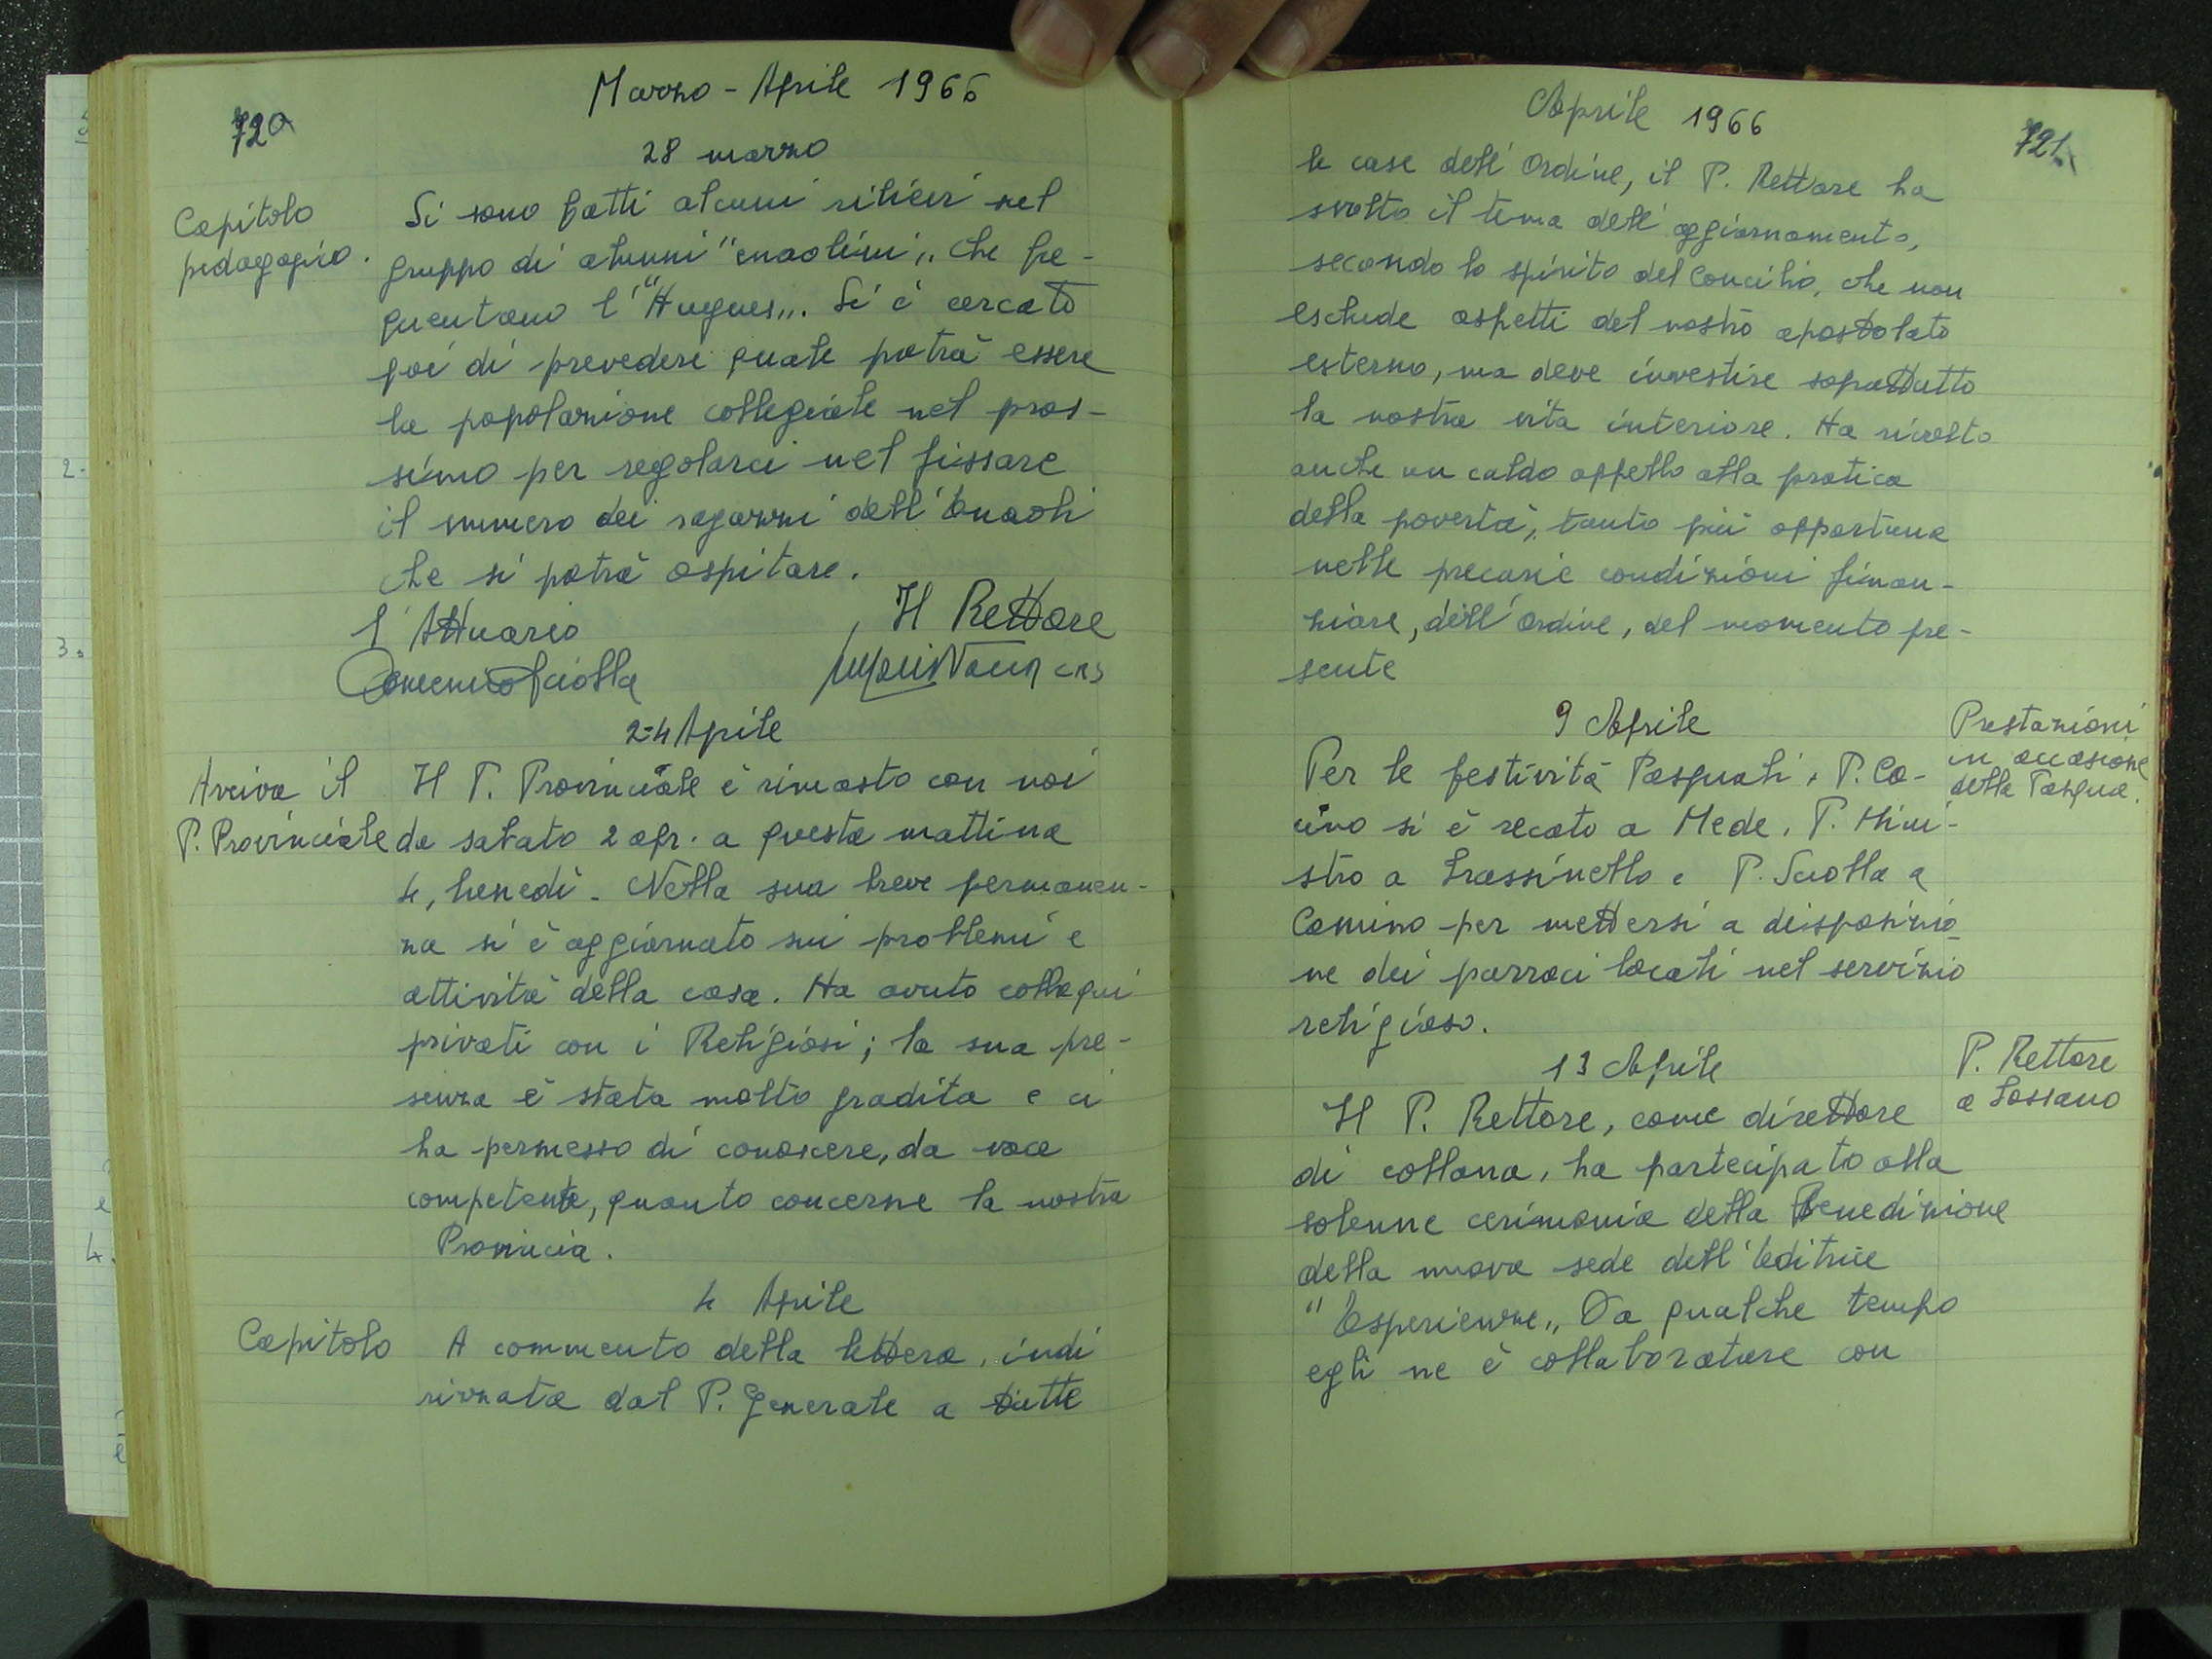 720
Marzo - Aprile 1966
28 marzo
Capitolo
pedagogico.
Si sono fatti alcuni rilievi nel
gruppo di alunni "enaolini" che fre-
quentano l'"Hugues". Si è cercato
poi di prevedere quale potrà essere
la popolazione collegiale nel pros-
simo per regolarci nel fissare
il numero dei ragazzi dell'Enaoli
che si potrà ospitare.
L'Attuario
Il Rettore
Sciolla
crs
2-4 Aprile
Arriva il
P. Provinciale
Il P. Provinciale è rimasto con noi
da sabato 2 apr. a questa mattina
4, lunedì. Nella sua breve permanen-
za si è aggiornato sui problemi e
attività della casa. Ha avuto colloqui
privati con i Religiosi; la sua pre-
senza è stata molto gradita e ci
ha permesso di conoscere, da voce
competente, quanto concerne la nostra
Provincia.
4 Aprile
Capitolo
A commento della lettera, indi
rizzata dal P. Generale a tutte
Aprile 1966
721
le case dell'Ordine, il P. Rettore ha
svolto il tema dell'aggiornamento,
secondo lo spirito del Concilio, che non
esclude aspetti del nostro apostolato
esterno, ma deve investire soprattutto
la nostra vita interiore. Ha rivolto
anche un caldo appello alla pratica
della povertà, tanto più opportuna
nelle precarie condizioni finan-
ziare, dell'Ordine, del momento pre-
sente
9 Aprile
Prestazioni
in occasione
della Pasqua.
Per le festività Pasquali, P. Ca-
cino si è recato a Mede, P. Mini-
stro a Frassinello e P. Sciolla a
Camino per mettersi a disposizio-
ne dei parroci locali nel servizio
religioso.
13 Aprile
P. Rettore
a Fossano
Il P. Rettore, come direttore
di collana, ha partecipato alla
solenne cerimonia della Benedizione
della nuova sede dell'Editrice
"Esperienze" Da qualche tempo
egli ne è collaboratore con